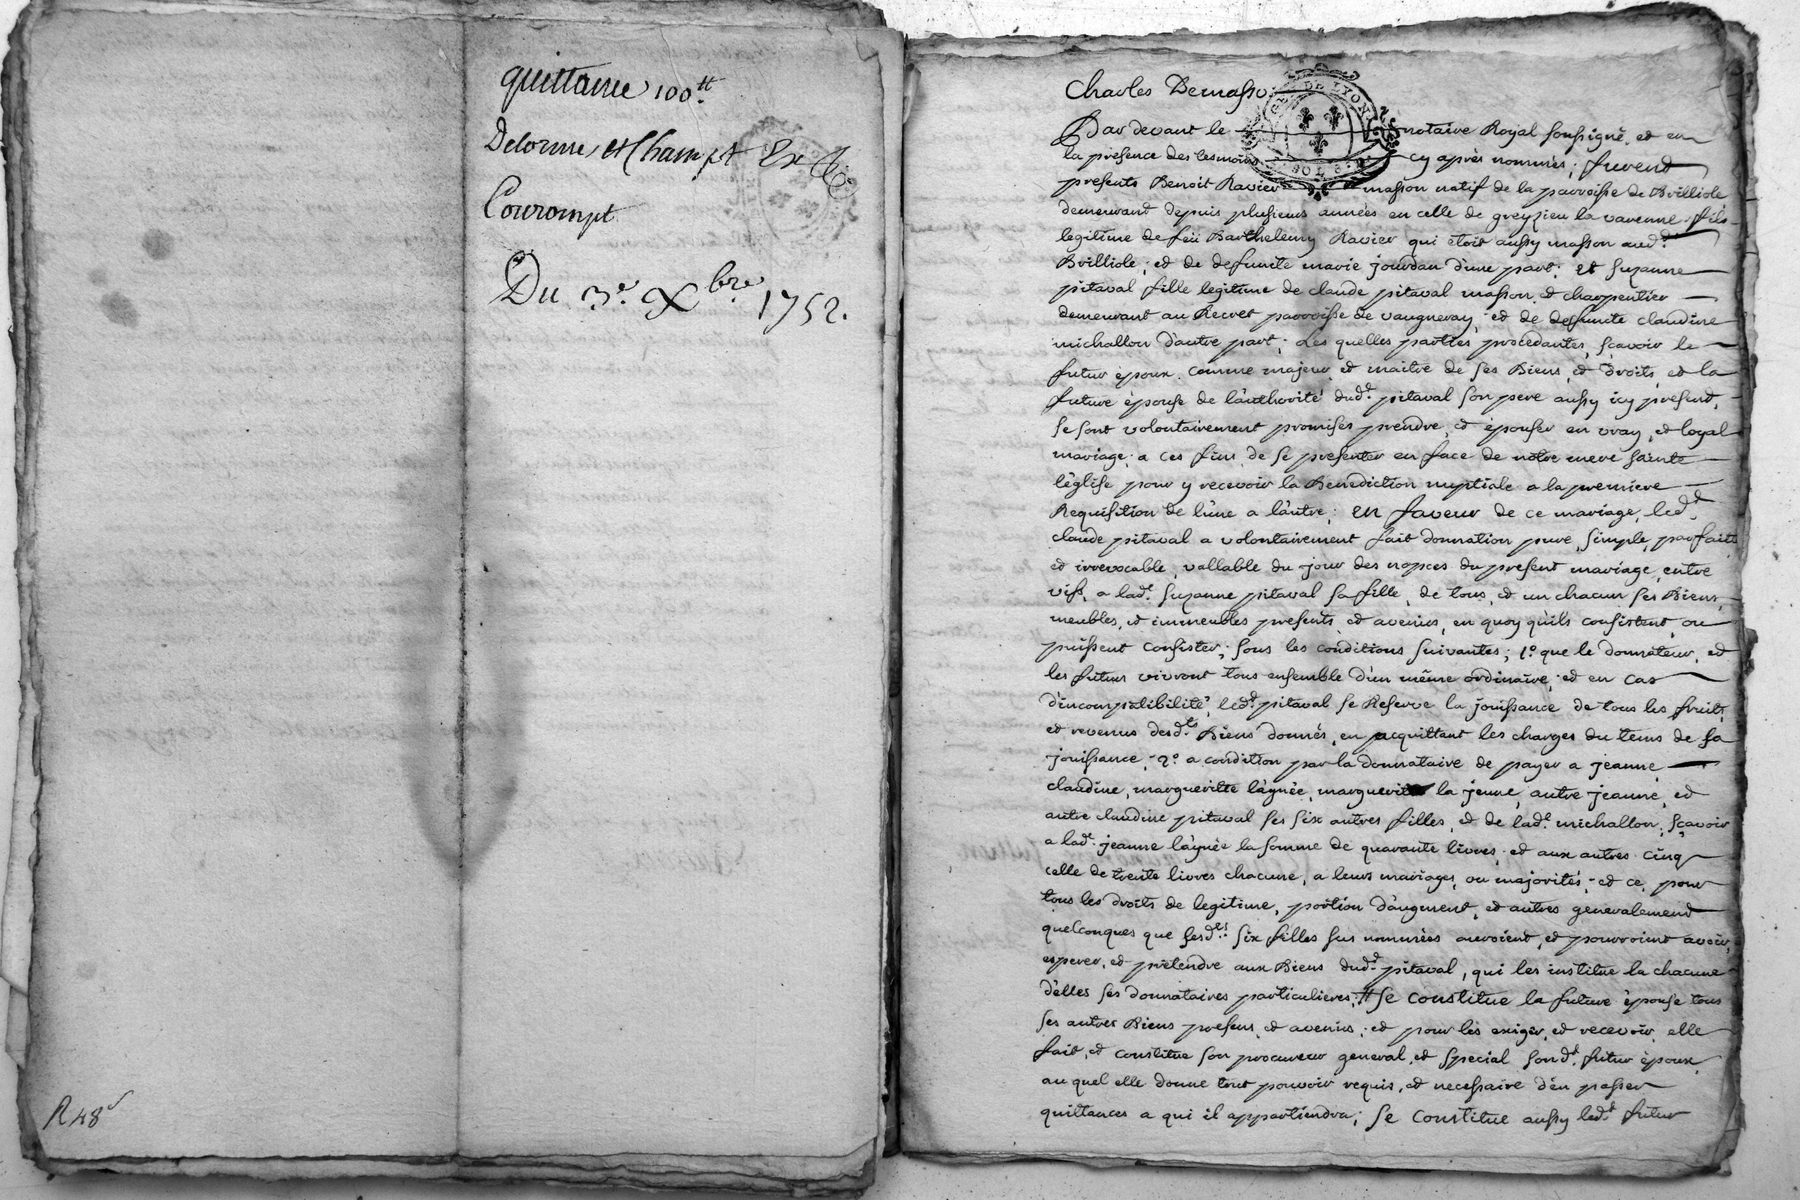 quittance 100.tt
Delorme et Champt
Courompt
Du 3.e Xbre 1752.
R 48
Charles Bernasso
GEN DE LYON
SOL
Par devant le notaire Royal soussigné, et en
la présence des tesmoins cy après nommés; furent
presents Benoit Ravier masson natif de la parroisse de Brilliole
demeurant depuis plusieurs années en celle de greyzieu la varenne fils
legitime de feü Barthelemy Ravier qui étoit aussy masson aud.d
Brilliole; et de defunte marie jourdan d'une part; et Suzanne
pitaval fille legitime de claude pitaval masson et charpentier
demeurant au Recret parroisse de vaugneray, et de deffunte claudine
michallon d'autre part; Les quelles parties procedantes, sçavoir le
futur époux comme majeur et maitre de ses Biens, et droits, et la
future épouse de l'authorité dud.d pitaval son pere aussy icy present,
se sont volontairement promises prendre, et épouser en vray, et loyal
mariage; a ces fins de se presenter en face de notre mere sainte
l'église pour y recevoir la Benediction nuptiale a la premiere
Requisition de l'une a l'autre; en faveur de ce mariage, led.d
claude pitaval a volontairement fait donnation pure, simple, parfaite
et irrevocable, vallable du jour des nopces du present mariage, entre
vifs, a lad.e Suzanne pitaval sa fille, de tous, et un chacun ses Biens,
meubles, et immeubles presents et avenirs, en quoy qu'ils consistent, ou
puissent consister; sous les conditions suivantes; 1.o que le donnateur, et
les futurs vivront tous ensemble d'un même ordinaire; et en cas
d'incompatibilité, led.d pitaval se Reserve la jouissance de tous les fruits,
et revenus desd.ts Biens donnés, en acquittant les charges du tems de sa
jouissance; 2.o a condition par la donnataire de payer a jeanne,
claudine, marguerite l'aynée, marguerite la jeune, autre jeanne, et
autre claudine pitaval ses six autres filles, et de lad.e michallon, sçavoir
a lad.e jeanne l'aynée la somme de quarante livres, et aux autres cinq
celle de trente livres chacune, a leurs mariages, ou majorités; et ce, pour
tous les droits de legitime, portion d'augment, et autres generalement
quelconques que sesd.es six filles sus nommées auroient, et pourroient avoir,
esperer, et prétendre aux Biens dud.d pitaval, qui les institue la chacune
d'elles ses donnataires particulieres; se constitue la future épouse tous
ses autres Biens presens, et avenirs; et pour les exiger, et recevoir, elle
fait, et constitue son procureur general, et special sond.d futur époux,
au quel elle donne tout pouvoir requis, et necessaire d'en passer
quittances a qui il appartiendra; se constitue aussy led.d futur